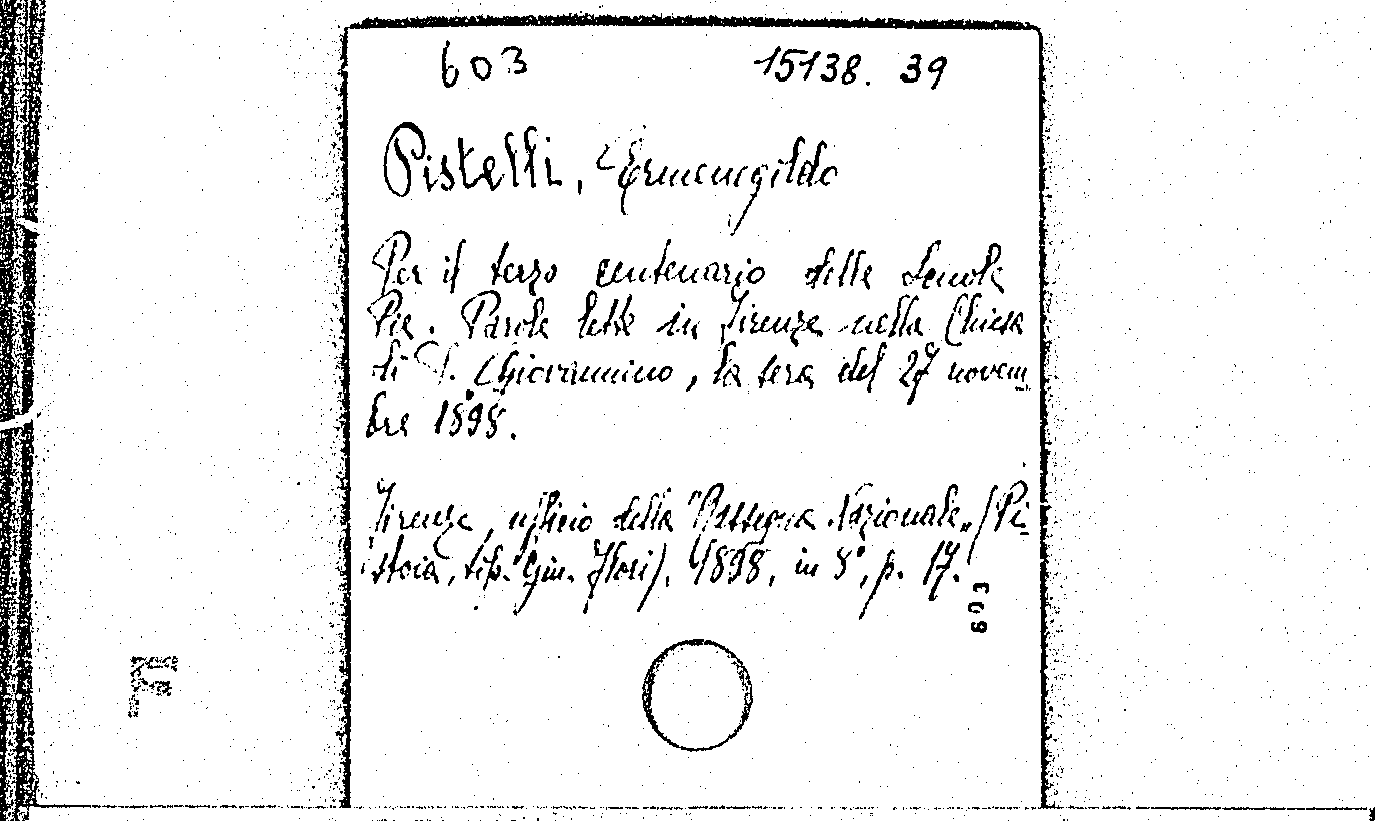 603 15138. 39
Pistelli, Ermenegildo
Per il terzo centenario delle Scuole
Pie. Parole lette in Firenze nella Chiesa
di S. Ghiovannino, la sera del 27 novem
bre 1898.
Firenze, ufficio della "Rassegna Nazionale" (Pi
stoia, tip. Giu. Flori), 1898, in 8°, p. 17.
603
F